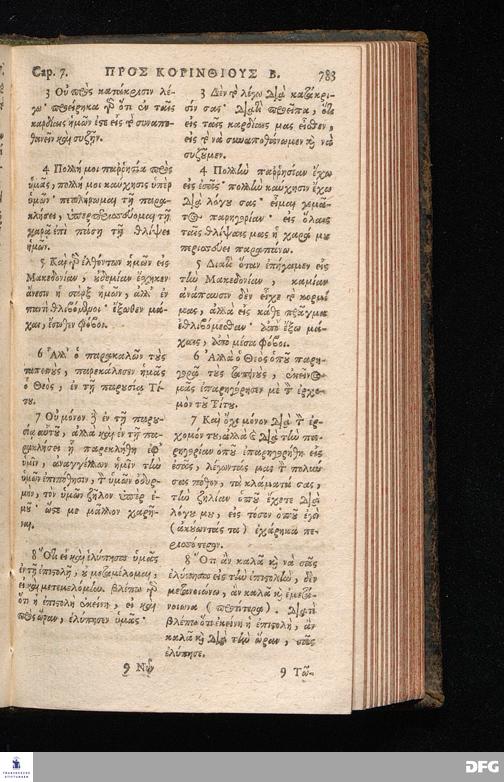 Cap. 7. ΠΡΟΣ ΚΟΡΙΝΘΙΟΥΣ Β. 783
3 Οὐ πρὸς κατάκρισιν λέ-
γω· προείρηκα γὰρ ὅτι ἐν ταῖς
καρδίαις ἡμῶν ἐστὲ εἰς τὸ συναπο-
θανεῖν καὶ συζῆν.
4 Πολλή μοι παῤῥησία πρὸς
ὑμᾶς, πολλή μοι καύχησις ὑπὲρ
ὑμῶν· πεπλήρωμαι τῇ παρα-
κλήσει, ὑπερπερισσεύομαι τῇ
χαρᾷ ἐπὶ πάσῃ τῇ θλίψει
ἡμῶν.
5 Καὶ γὰρ ἐλθόντων ἡμῶν εἰς
Μακεδονίαν, οὐδεμίαν ἔσχηκεν
ἄνεσιν ἡ σὰρξ ἡμῶν, ἀλλ' ἐν
παντὶ θλιβόμενοι· ἔξωθεν μά-
χαι, ἔσωθεν φόβοι.
6 Ἀλλ' ὁ παρακαλῶν τοὺς
ταπεινοὺς, παρεκάλεσεν ἡμᾶς
ὁ Θεὸς, ἐν τῇ παρουσίᾳ Τί-
του.
7 Οὐ μόνον δὲ ἐν τῇ παρου-
σίᾳ αὐτοῦ, ἀλλὰ καὶ ἐν τῇ πα-
ρακλήσει ᾗ παρεκλήθη ἐφ'
ὑμῖν, ἀναγγέλλων ἡμῖν τὴν
ὑμῶν ἐπιπόθησιν, τὸν ὑμῶν ὀδυρ-
μὸν, τὸν ὑμῶν ζῆλον ὑπὲρ ἐ-
μοῦ· ὥστε με μᾶλλον χαρῆ-
ναι.
8 Ὅτι εἰ καὶ ἐλύπησα ὑμᾶς
ἐν τῇ ἐπιστολῇ, οὐ μεταμέλομαι,
εἰ καὶ μετεμελόμην. βλέπω γὰρ
ὅτι ἡ ἐπιστολὴ ἐκείνη, εἰ καὶ
πρὸς ὥραν, ἐλύπησεν ὑμᾶς·
9 Νῦν
3 Δὲν τὸ λέγω διὰ κατάκρι-
σίν σας· διατὶ προεῖπα, ὅτι
εἰς ταῖς καρδίαις μας εἶσθεν,
εἰς τὸ νὰ συναποθάνωμεν καὶ νὰ
συζῶμεν.
4 Πολλὴν παῤῥησίαν ἔχω
εἰς ἐσᾶς· πολλὴν καύχησιν ἔχω
διὰ λόγου σας· εἶμαι γεμᾶ-
τος παρηγορίαν· εἰς ὅλαις
ταῖς θλίψαις μας ἡ χαρά μου
περισσεύει παραπάνω.
5 Διατὶ ὅταν ἐπήγαμεν εἰς
τὴν Μακεδονίαν, καμίαν
ἀνάπαυσιν δὲν εἶχε τὸ κορμί
μας, ἀλλὰ εἰς κάθε πρᾶγμα
ἐθλιβόμεσθαν· ἀπὸ ἔξω μά-
χαις, ἀπὸ μέσα φόβοι.
6 Ἀλλὰ ὁ Θεὸς ὁποῦ παρη-
γορᾷ τοὺς ταπεινοὺς, ἐκεῖνος
μᾶς ἐπαρηγόρησεν μὲ τὸν ἐρχο-
μὸν τοῦ Τίτου.
7 Καὶ ὄχι μόνον διὰ τὸν ἐρ-
χομόν του, ἀλλὰ καὶ διὰ τὴν πα-
ρηγορίαν ὁποῦ ἐπαρηγορήθη εἰς
ἐσᾶς, λέγωντάς μας τὸν πολύν
σας πόθον, τὰ κλάματά σας,
τὴν ζηλίαν ὁποῦ ἔχετε διὰ
λόγου μου, εἰς τόσον ὁποῦ ἐγὼ
(ἀκούωντάς τα) ἐχάρηκα πε-
ρισσότερον.
8 Ὅτι ἂν καλὰ καὶ νὰ σᾶς
ἐλύπησα εἰς τὴν ἐπιστολὴν, δὲν
μετανοιώνω, ἂν καλὰ καὶ ἐμετά-
νοιωνα (προτίτερα). διατὶ
βλέπω ὅτι ἐκείνη ἡ ἐπιστολὴ, ἂν
καλὰ καὶ διὰ τὴν ὥραν, σᾶς
ἐλύπησε.
9 Τώ-
FRANCKESCHE STIFTUNGEN
DFG